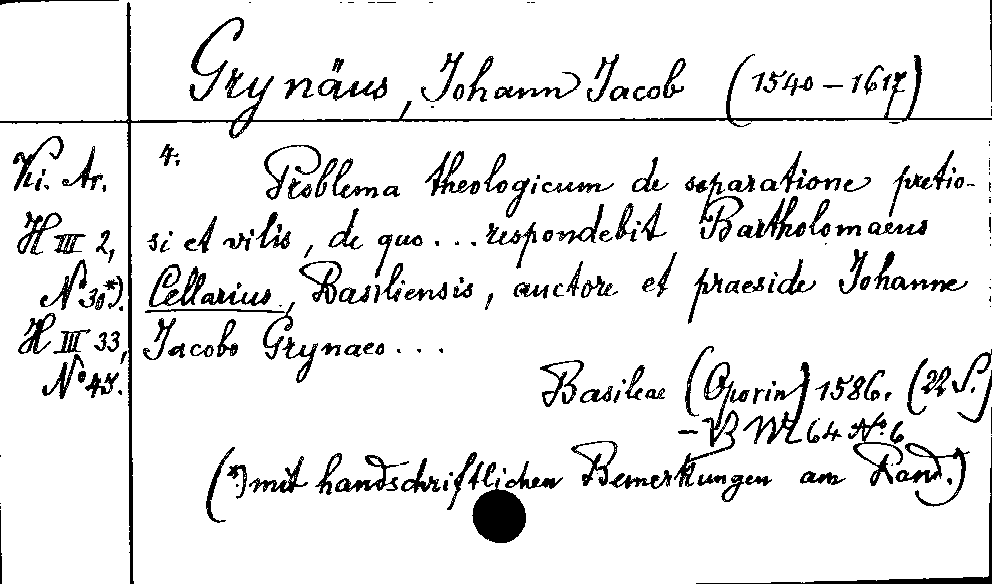 Grynäus, Johann Jacob (1540-1617)
Ki. Ar. 4. Problema theologicum de separatione pretio-
H III 2, si et vilis, de quo... respondebit Bartholomaeus
No 30*). Cellarius, Basiliensis, auctore et praeside Johanne
H III 33, Jacobo Grynaeo...
No 45.
Basileae (Oporin) 1586. (22 S.)
- 64 No. 6
(*) mit handschriftlichen Bemerkungen am Rand.)